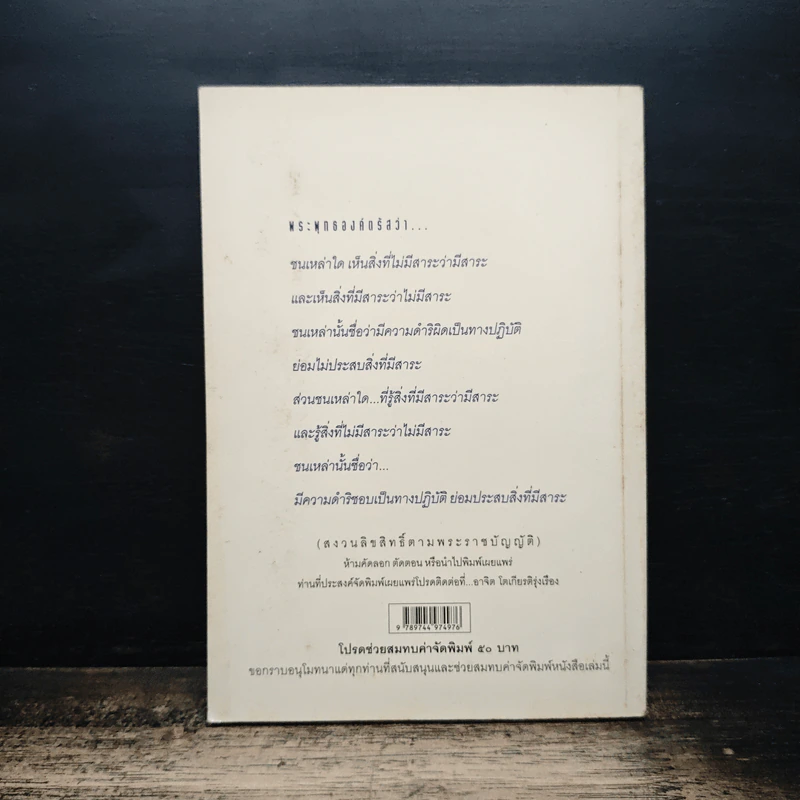 พระพุทธองค์ตรัสว่า...
ชนเหล่าใด เห็นสิ่งที่ไม่มีสาระว่ามีสาระ
และเห็นสิ่งที่มีสาระว่าไม่มีสาระ
ชนเหล่านั้นชื่อว่ามีความดำริผิดเป็นทางปฏิบัติ
ย่อมไม่ประสบสิ่งที่มีสาระ
ส่วนชนเหล่าใด...ที่รู้สิ่งที่มีสาระว่ามีสาระ
และรู้สิ่งที่ไม่มีสาระว่าไม่มีสาระ
ชนเหล่านั้นชื่อว่า...
มีความดำริชอบเป็นทางปฏิบัติ ย่อมประสบสิ่งที่มีสาระ
(สงวนลิขสิทธิ์ตามพระราชบัญญัติ)
ห้ามคัดลอก ตัดตอน หรือนำไปพิมพ์เผยแพร่
ท่านที่ประสงค์จัดพิมพ์เผยแพร่โปรดติดต่อที่...อาจิต โตเกียรติรุ่งเรือง
9 789744 974976
โปรดช่วยสมทบค่าจัดพิมพ์ ๕๐ บาท
ขอกราบอนุโมทนาแด่ทุกท่านที่สนับสนุนและช่วยสมทบค่าจัดพิมพ์หนังสือเล่มนี้